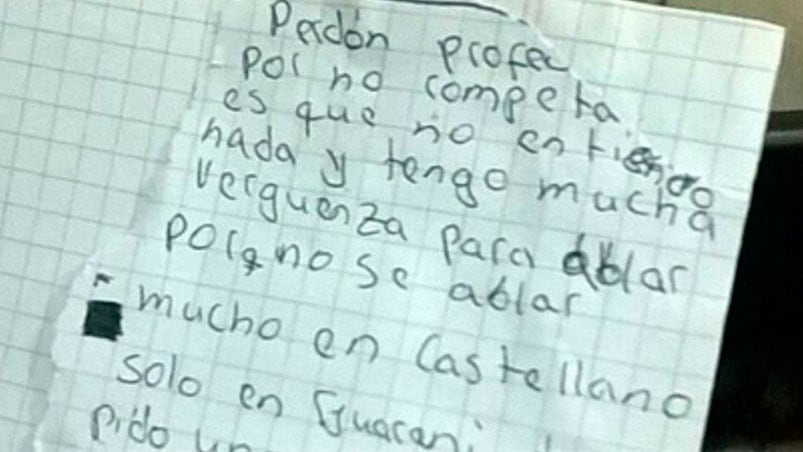 Perdón profe
por no competa
es que no entiendo
nada y tengo mucha
verguenza para ablar
porq no se ablar
mucho en Castellano
solo en Guarani
pido un